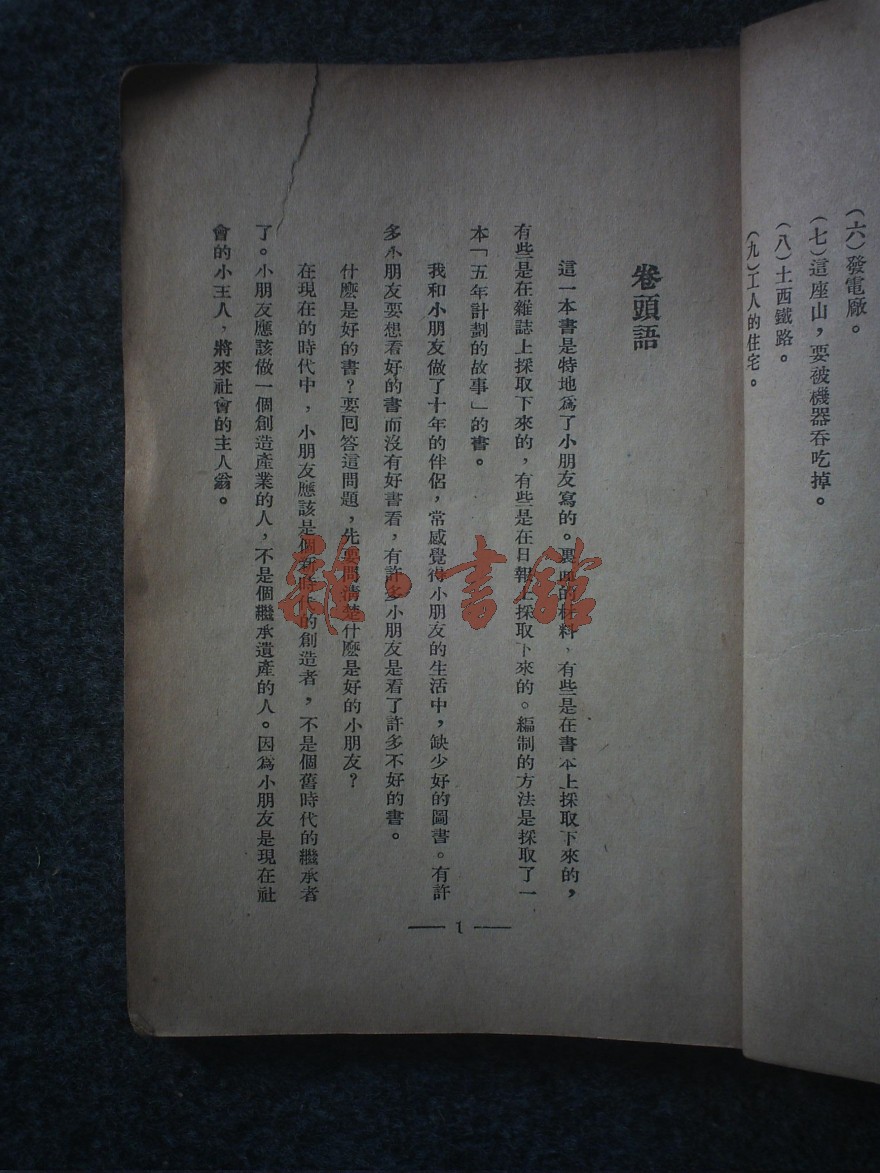 (六)發電廠。
(七)這座山,要被機器吞吃掉。
(八)土西鐵路。
(九)工人的住宅。
卷頭語
這一本書是特地爲了小朋友寫的。裏面的材料,有些是在書本上採取下來的,
有些是在雜誌上採取下來的,有些是在日報上採取下來的。編制的方法是採取了一
本「五年計劃的故事」的書。
我和小朋友做了十年的伴侶,常感覺得小朋友的生活中,缺少好的圖書。有許
多小朋友要想看好的書而沒有好書看,有許多小朋友是看了許多不好的書。
什麼是好的書?要回答這問題,先要問清楚什麼是好的小朋友?
在現在的時代中,小朋友應該是個新時代的創造者,不是個舊時代的繼承者
了。小朋友應該做一個創造產業的人,不是個繼承遺產的人。因爲小朋友是現在社
會的小主人,將來社會的主人翁。
— 1 —
雜·書館